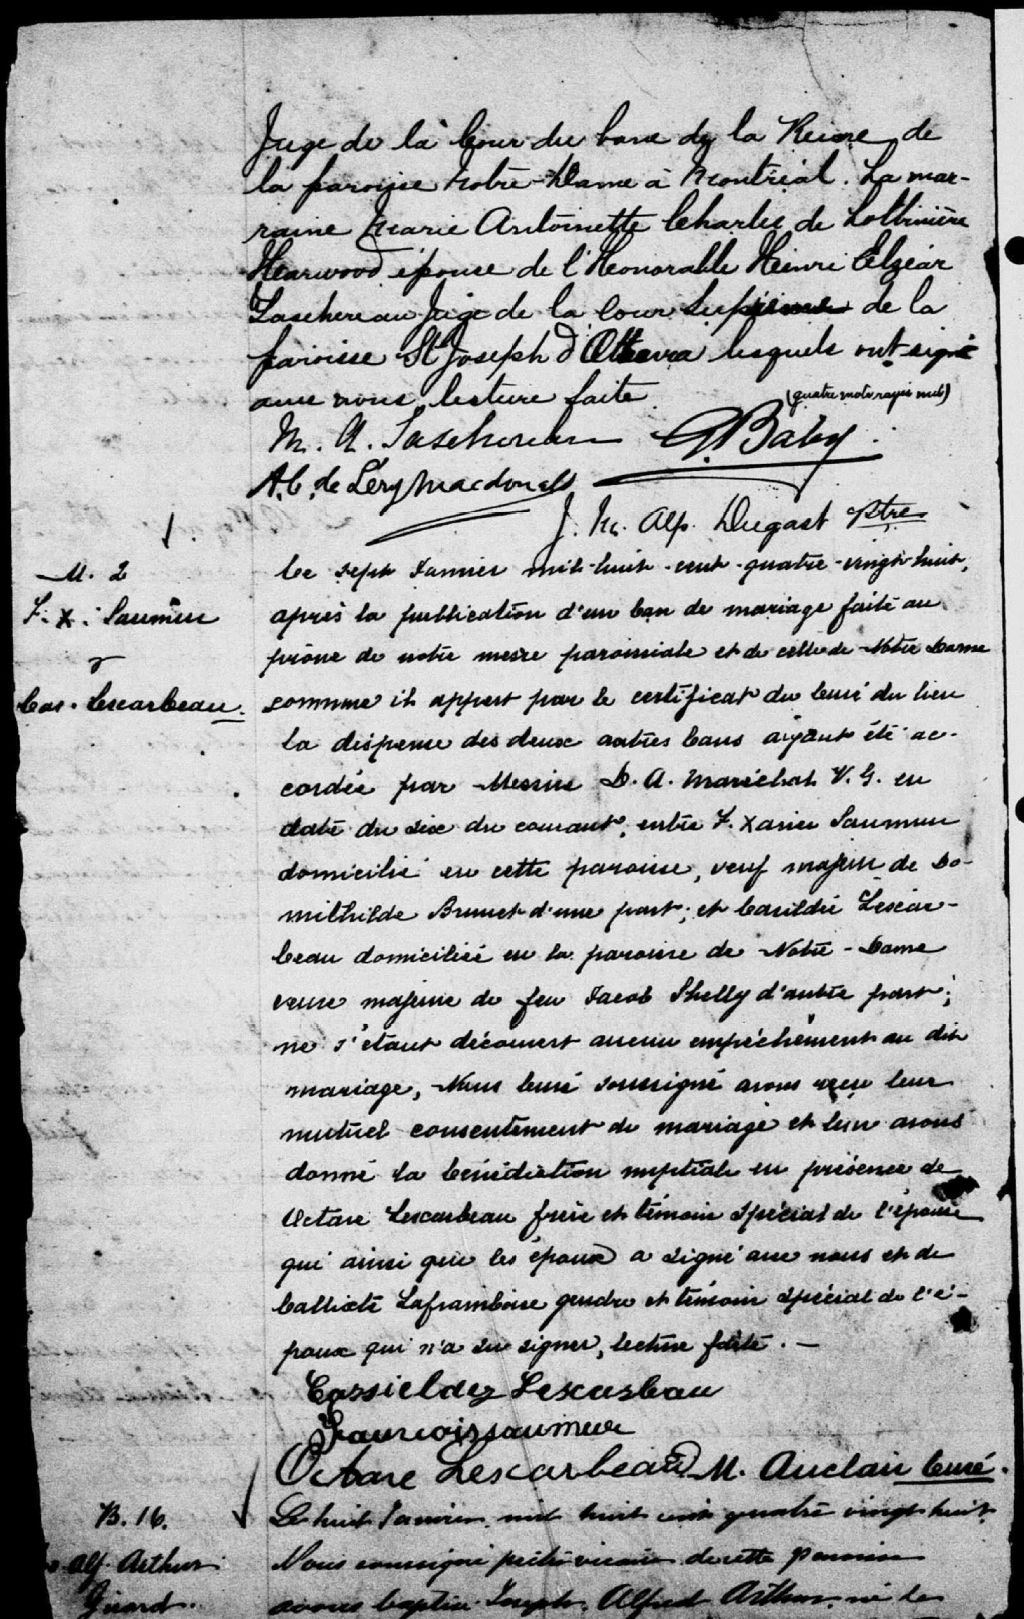 Juge de la Cour du banc de la Reine de
la paroisse Notre-Dame à Montréal. La mar-
raine Marie Antoinette Charlu de Lotbinière
Hearwood épouse de l'Honorable Henri Elzéar
Taschereau Juge de la Cour Suprème de la
paroisse St Joseph d'Ottawa lesquels ont signé
avec nous, lecture faite.
(quatre mots rayés nuls)
M. A. Taschereau G. Baby
A. C. de Léry Macdonald
J. M. Alp. Dugast Ptre
M. 2
F. X. Saumur
&
Cas. Lescarbeau.
Le sept Janvier mil-huit-cent-quatre-vingt-huit,
après la publication d'un ban de mariage faite au
prône de notre messe paroissiale et de celle de Notre Dame
comme il appert par le certificat du Curé du lieu
la dispense des deux autres bans ayant été ac-
cordée par Messire L. A. Maréchal V. G. en
date du six du courant, entre F. Xavier Saumur
domicilié en cette paroisse, veuf majeur de Do-
mithilde Brunet d'une part; et Casildée Lescar-
beau domiciliée en la paroisse de Notre-Dame
veuve majeure de feu Jacob Shelly d'autre part;
ne s'étant découvert aucun empêchement au dit
mariage, Nous Curé soussigné avons reçu leur
mutuel consentement de mariage et leur avons
donné la bénédiction nuptiale en présence de
Octave Lescarbeau frère et témoin spécial de l'épouse
qui ainsi que les époux a signé avec nous et de
Callixte Laframboise gendre et témoin spécial de l'é-
poux qui n'a su signer, lecture faite. —
Cassieldez Lescarbeau
Francois saumeur
Octave Lescarbeau M. Auclair Curé.
B. 16.
Alf. Arthur
Girard.
Le huit Janvier mil huit cent quatre vingt huit
Nous soussigné prêtre vicaire de cette paroisse
avons baptisé Joseph Alfred Arthur né le